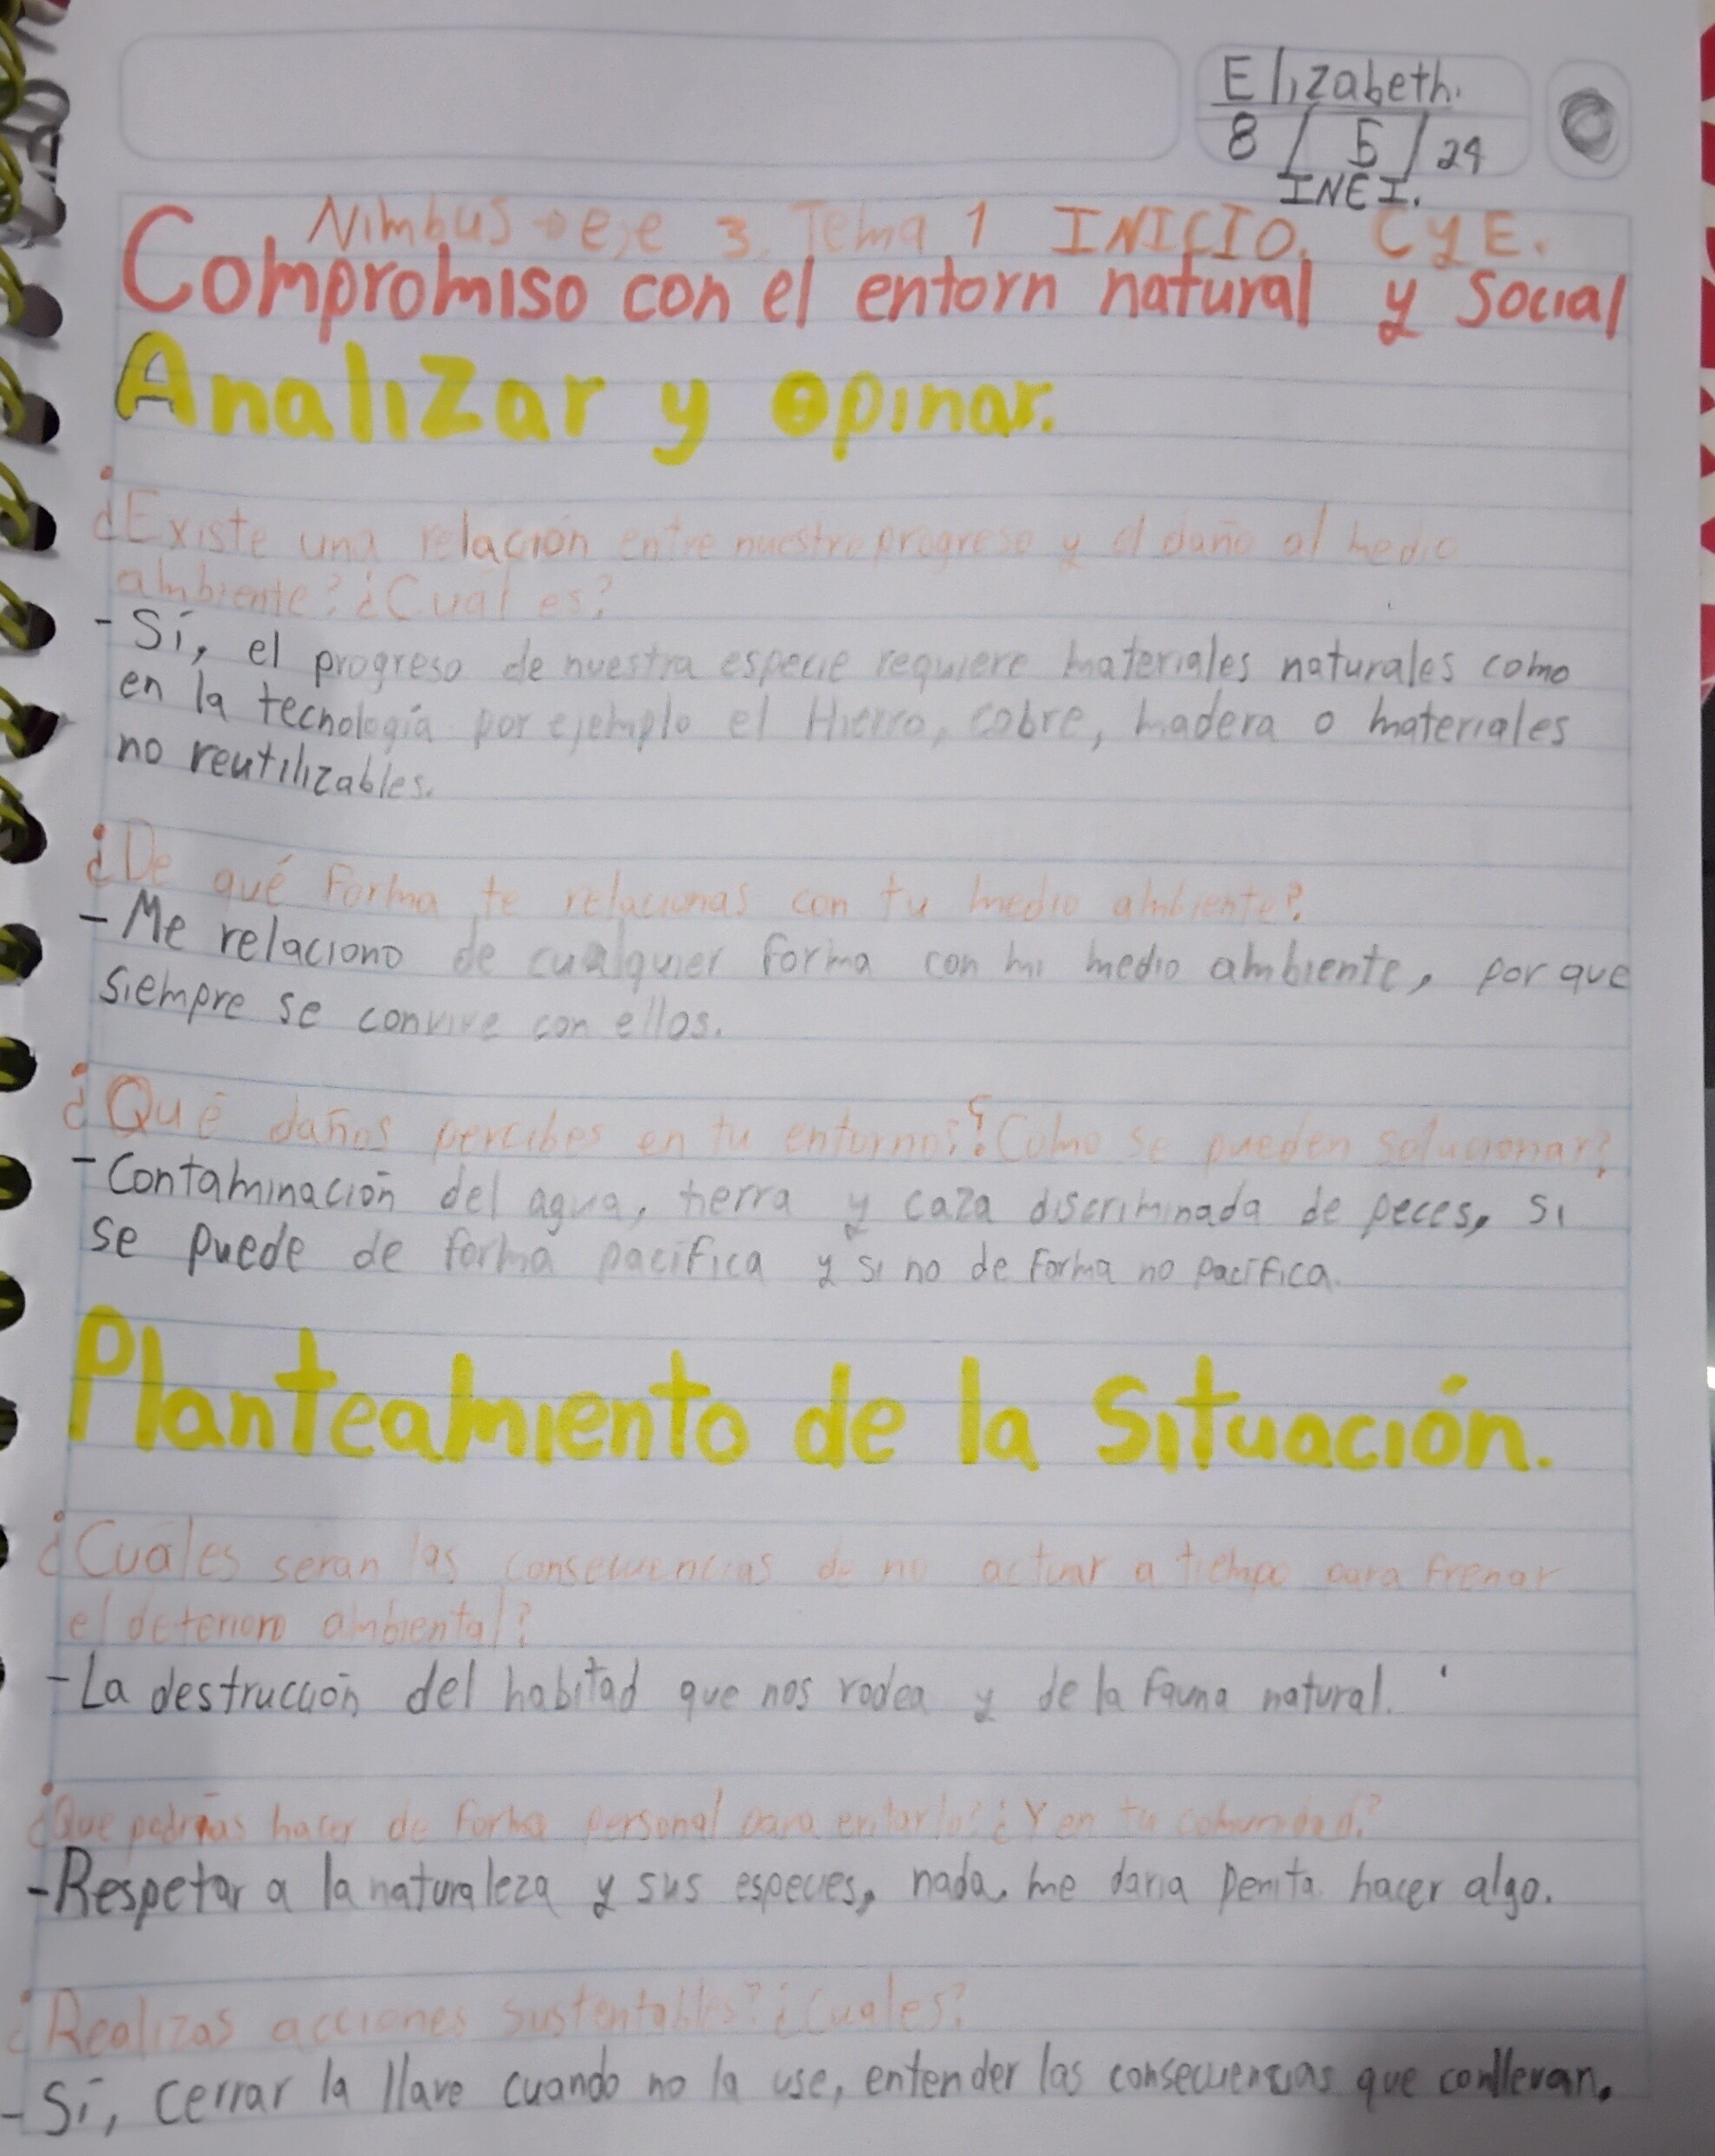 Elizabeth.
8 / 5 / 24
INEI.
Nimbus → eje 3. Tema 1 INICIO. CyE.
Compromiso con el entorn natural y Social
Analizar y opinar.
¿Existe una relación entre nuestro progreso y el daño al medio
ambiente? ¿Cual es?
- Sí, el progreso de nuestra especie requiere materiales naturales como
en la tecnología por ejemplo el Hierro, cobre, madera o materiales
no reutilizables.
¿De qué Forma te relacionas con tu medio ambiente?
- Me relaciono de cualquier forma con mi medio ambiente, por que
siempre se convive con ellos.
¿Qué daños percibes en tu entorno? ¿Como se pueden solucionar?
- Contaminación del agua, tierra y caza discriminada de peces, si
se puede de forma pacífica y si no de forma no pacífica.
Planteamiento de la Situación.
¿Cuáles seran las consecuencias de no actuar a tiempo para frenar
el deterioro ambiental?
- La destrucción del habitad que nos rodea y de la fauna natural.
¿Que podrías hacer de forma personal para evitarlo? ¿Y en tu comunidad?
- Respetar a la naturaleza y sus especies, nada, me daria penita hacer algo.
¿Realizas acciones sustentables? ¿Cuales?
- Sí, cerrar la llave cuando no la use, entender las consecuencias que conllevan.